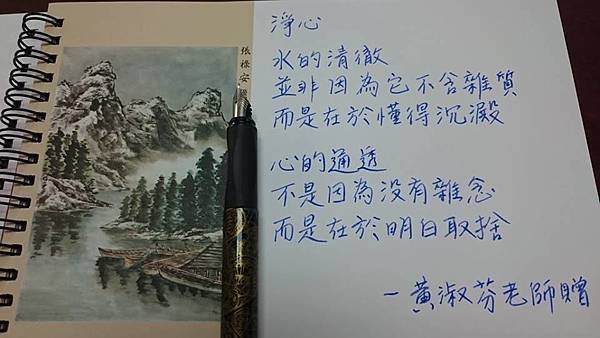 張祿安
淨心
水的清徹
並非因為它不含雜質
而是在於懂得沉澱
心的通透
不是因為没有雜念
而是在於明白取捨
－黃淑芬老師贈